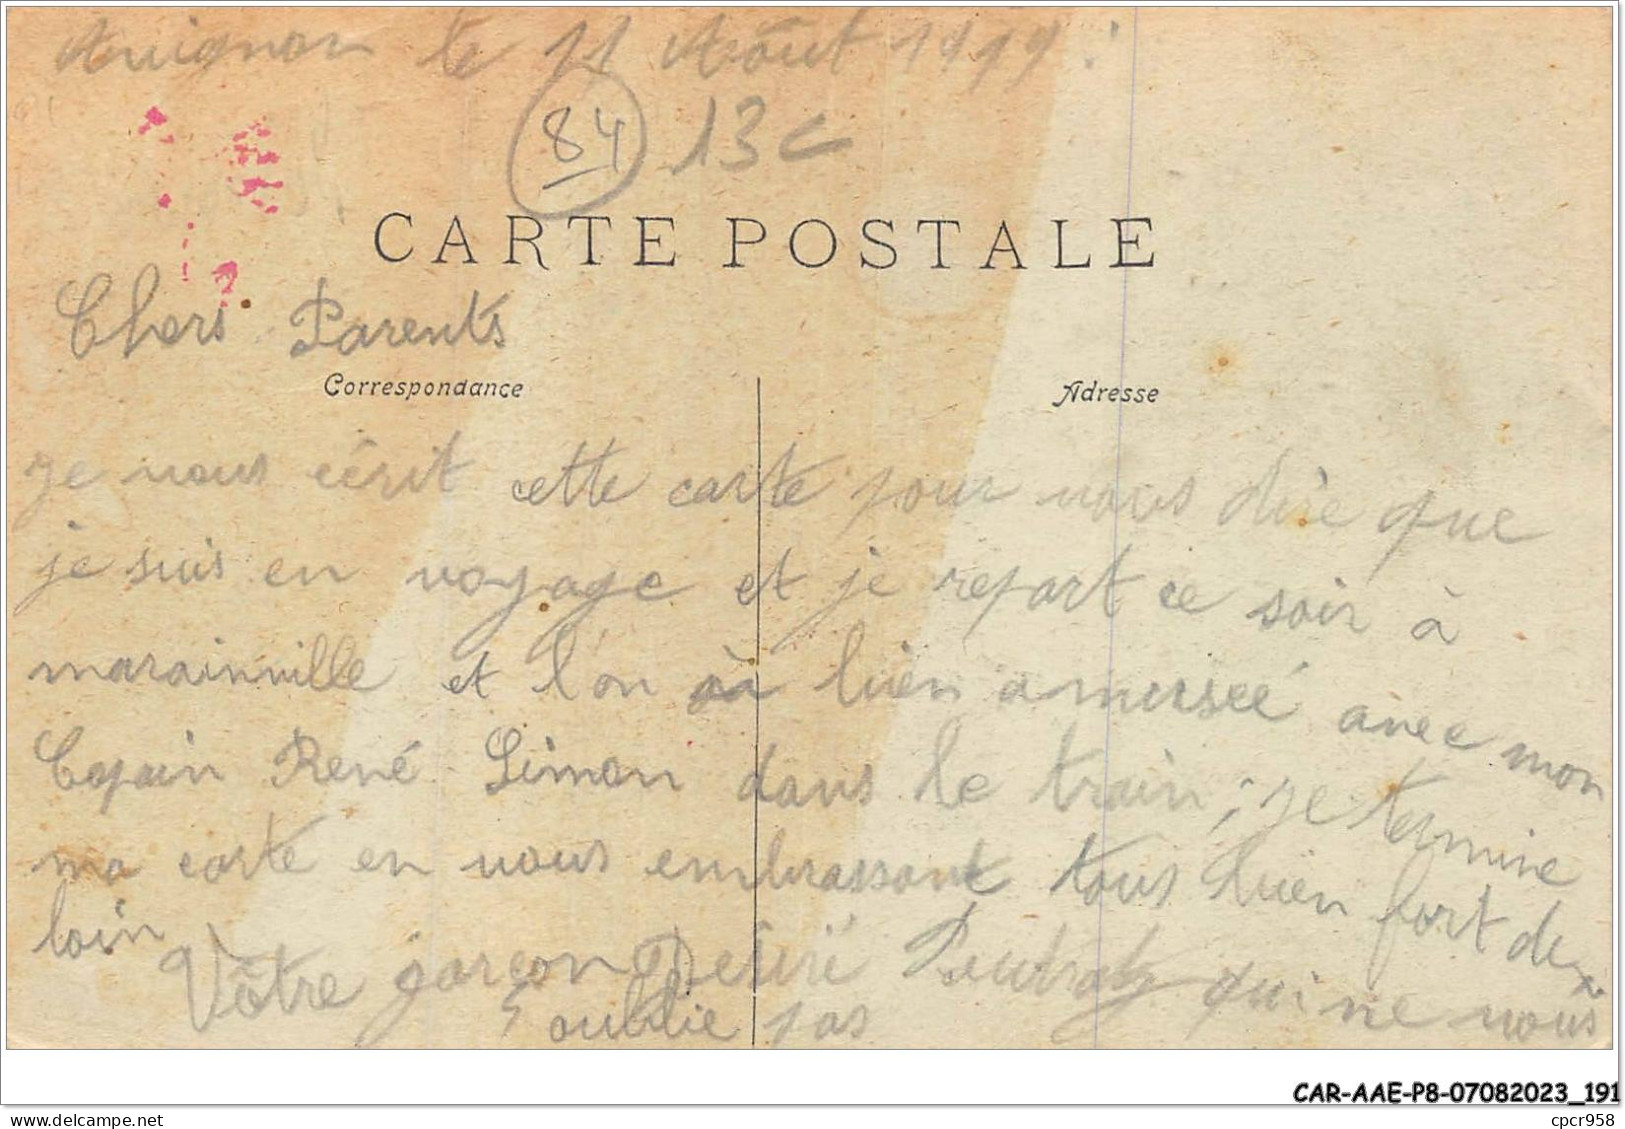 Avignon le 11 Août 1919
84 13 c
CARTE POSTALE
Chers Parents
Correspondance
Adresse
je vous écrit cette carte pour vous dire que
je suis en voyage et je repart ce soir à
marainville et l'on à bien amuseé avec mon
Copain René Simon dans le train ; je termine
ma carte en vous embrassant tous bien fort de
loin
Vôtre garçon Désiré qui ne vous
oublie pas
CAR-AAE-P8-07082023_191
delcampe.net
cpcr958